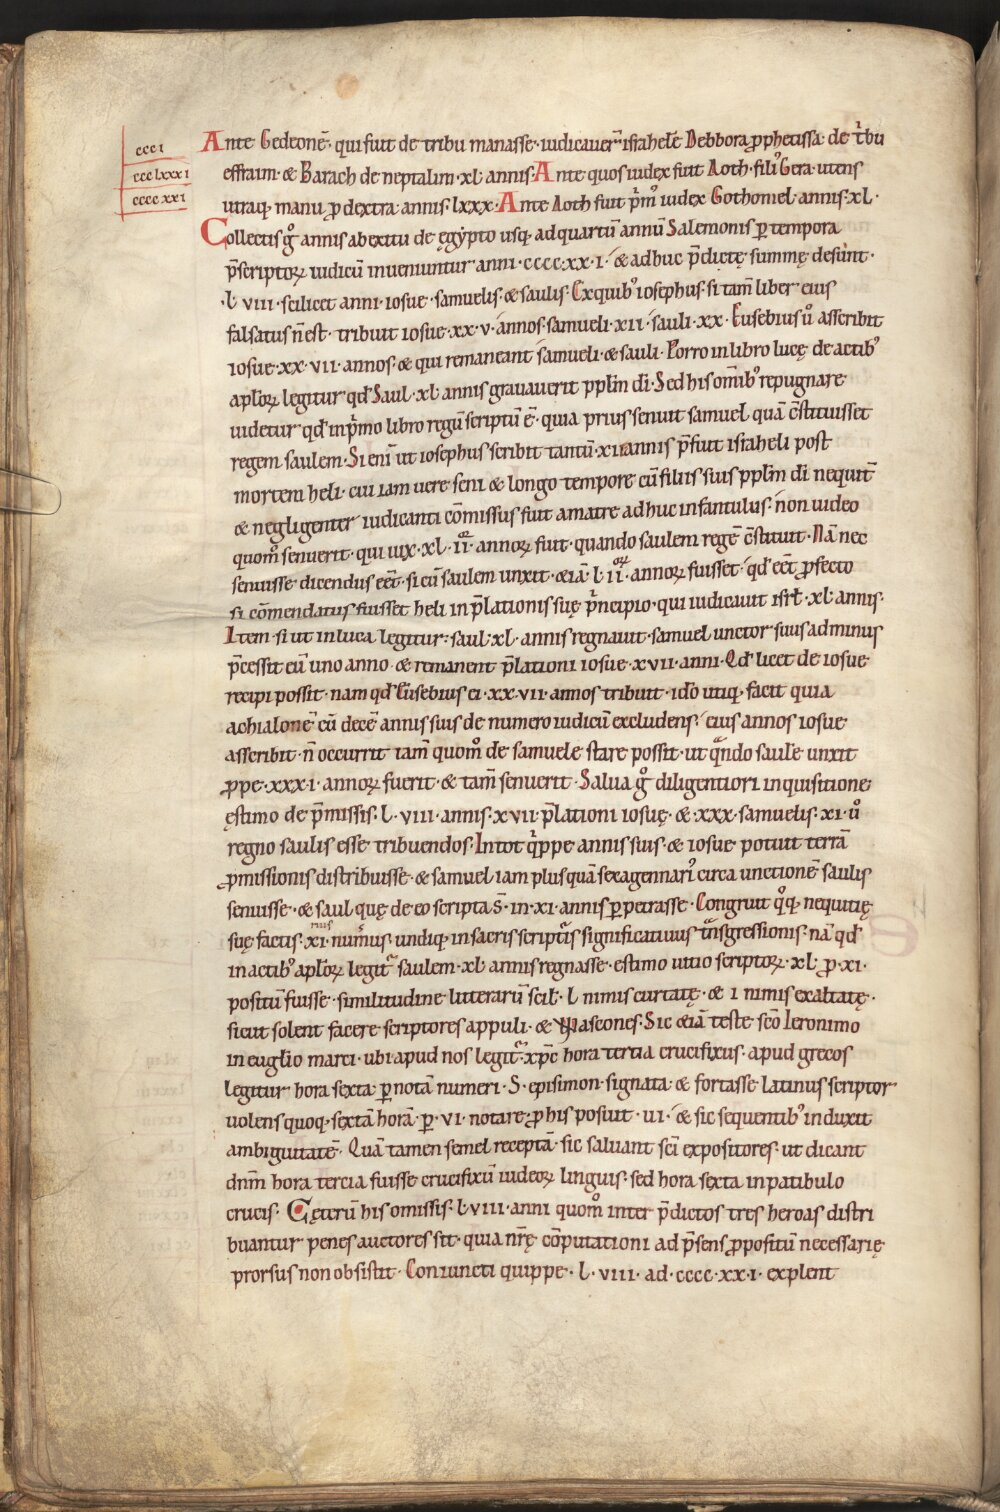 ccc I
ccc lxxx I
cccc xx I
Ante Gedeonē· qui fuit de tribu manasse· iudicauer̄ isrƚ̄ Debbora ꝓphetissa· de tͥbu
effraim· & Barach de neptalim· xl· annis· Ante quos iudex fuit Aoth· filiꝰ Gera· utens
utraq; manu ꝓ dextra· annis· lxxx· Ante Aoth fuit pͥmꝰ iudex Gothoniel· annis· xl·
Collectis gͦ annis ab exitu de ęgypto usq; ad quartū annū Salemonis ꝑ tempora
p̄scriptoꝝ iudicū inueniuntur anni· cccc· xx· I· & adhuc p̄dictę summę desunt·
·l· viii· scilicet anni· iosue· samuelis· & saulis· Ex quibꝰ iosephus· si tam̄ liber eius
falsatus n̄ est· tribuit iosue· xx· v· annos· samueli· xii· sauli· xx· Eusebius uͦ asseribit
iosue· xx· vii· annos· & qui remaneant samueli· & sauli· Porro in libro lucę de actibꝰ
apƚoꝝ legitur qđ Saul· xl· annis grauauerit ppƚm di· Sed his om̄ibꝰ repugnare
uidetur qđ in pͥmo libro regū scriptū ē· quia prius senuit samuel quā c̄stituisset
regem saulem· Si eni ut iosephus scribit tantū· xii annis p̄fuit israheli post
mortem heli· cui iam uere seni & longo tempore cū filiis suis ppƚm di nequit̄
& negligenter iudicanti cōmissus fuit a matre adhuc infantulus· non uideo
quomͦ senuerit· qui uix· xl· ii· annoꝝ fuit· quando saulem regē c̄stituit· Nā nec
senuisse dicendus eēt· si cū saulem unxit· &iā· l· ii· annoꝝ fuisset· qđ eēt ꝓfecto
si cōmendatus fuisset heli in p̄lationis suę pͥncipio· qui iudicauit isrƚ· xl· annis·
Item si ut in luca legitur· saul· xl· annis regnauit· samuel unctor suus ad minus
p̄cessit eū uno anno· & remanent p̄lationi iosue· xvii· anni· Qđ licet de iosue
recipi possit· nam qđ Eusebius ei· xx· vii· annos tribuit· idͦo utiq; facit quia
achialonē cū decē annis suis de numero iudicū excludens· eius annos iosue
asseribit· n̄ occurrit tam̄ quomͦ de samuele stare possit· ut qͣndo saulē unxit
ꝓpe· xxx· i· annoꝝ fuerit· & tam̄ senuerit· Salua gͦ diligentiori inquisitione
ęstimo de p̄missis· l· viii· annis· xvii· p̄lationi iosuę· & xxx· samuelis· xi· uͦ
regno saulis esse tribuendos· In tot qͥppe annis suis· & iosue potuit terrā
ꝓmissionis distribuisse· & samuel iam plus quā sexagennariꝰ circa unctionē saulis
senuisse· & saul quę de eo scripta s̄· in· xi· annis ꝑpetrasse· Congruit qͦq; nequitię
suę factis· xi nus numꝰus· undiq; in sacris scriptͥs significatiuus tͣnsgressionis· nā qđ
in actibꝰ apƚoꝝ legitͬ saulem· xl· annis regnasse· estimo uitio scriptoꝝ· xl· ꝓ· xi·
positū fuisse· similitudine litterarū scil̄· l nimis curtatę· & i nimis exaltatę·
sicut solent facere scriptores appuli· & Wascones· Sic &iā teste scō Ieronimo
in euglīo marci· ubi apud nos legitͬ· xp̄c hora tercia crucifixus· apud grecos
legitur hora sexta· ꝑ notā numeri· S· episimon· signata· & fortasse latinus scriptor
uolens quoq; sextā horā· ꝑ· vi· notare· ꝓ his posuit· ui· & sic sequentibꝰ induxit
ambiguitatē· Quā tamen semel receptā· sic saluant scī expositores· ut dicant
dnm̄ hora tercia fuisse crucifixū iudeoꝝ linguis· sed hora sexta in patibulo
crucis· Cęterū his omissis· l· viii· anni quomͦ inter p̄dictos tres heroas distri
buantur penes auctores sit· quia nrę̄ cōputationi ad p̄sens ꝓpositū necessarię
prorsus non obsistit· Coniuncti quippe· l· viii· ad· cccc· xx· i· explent